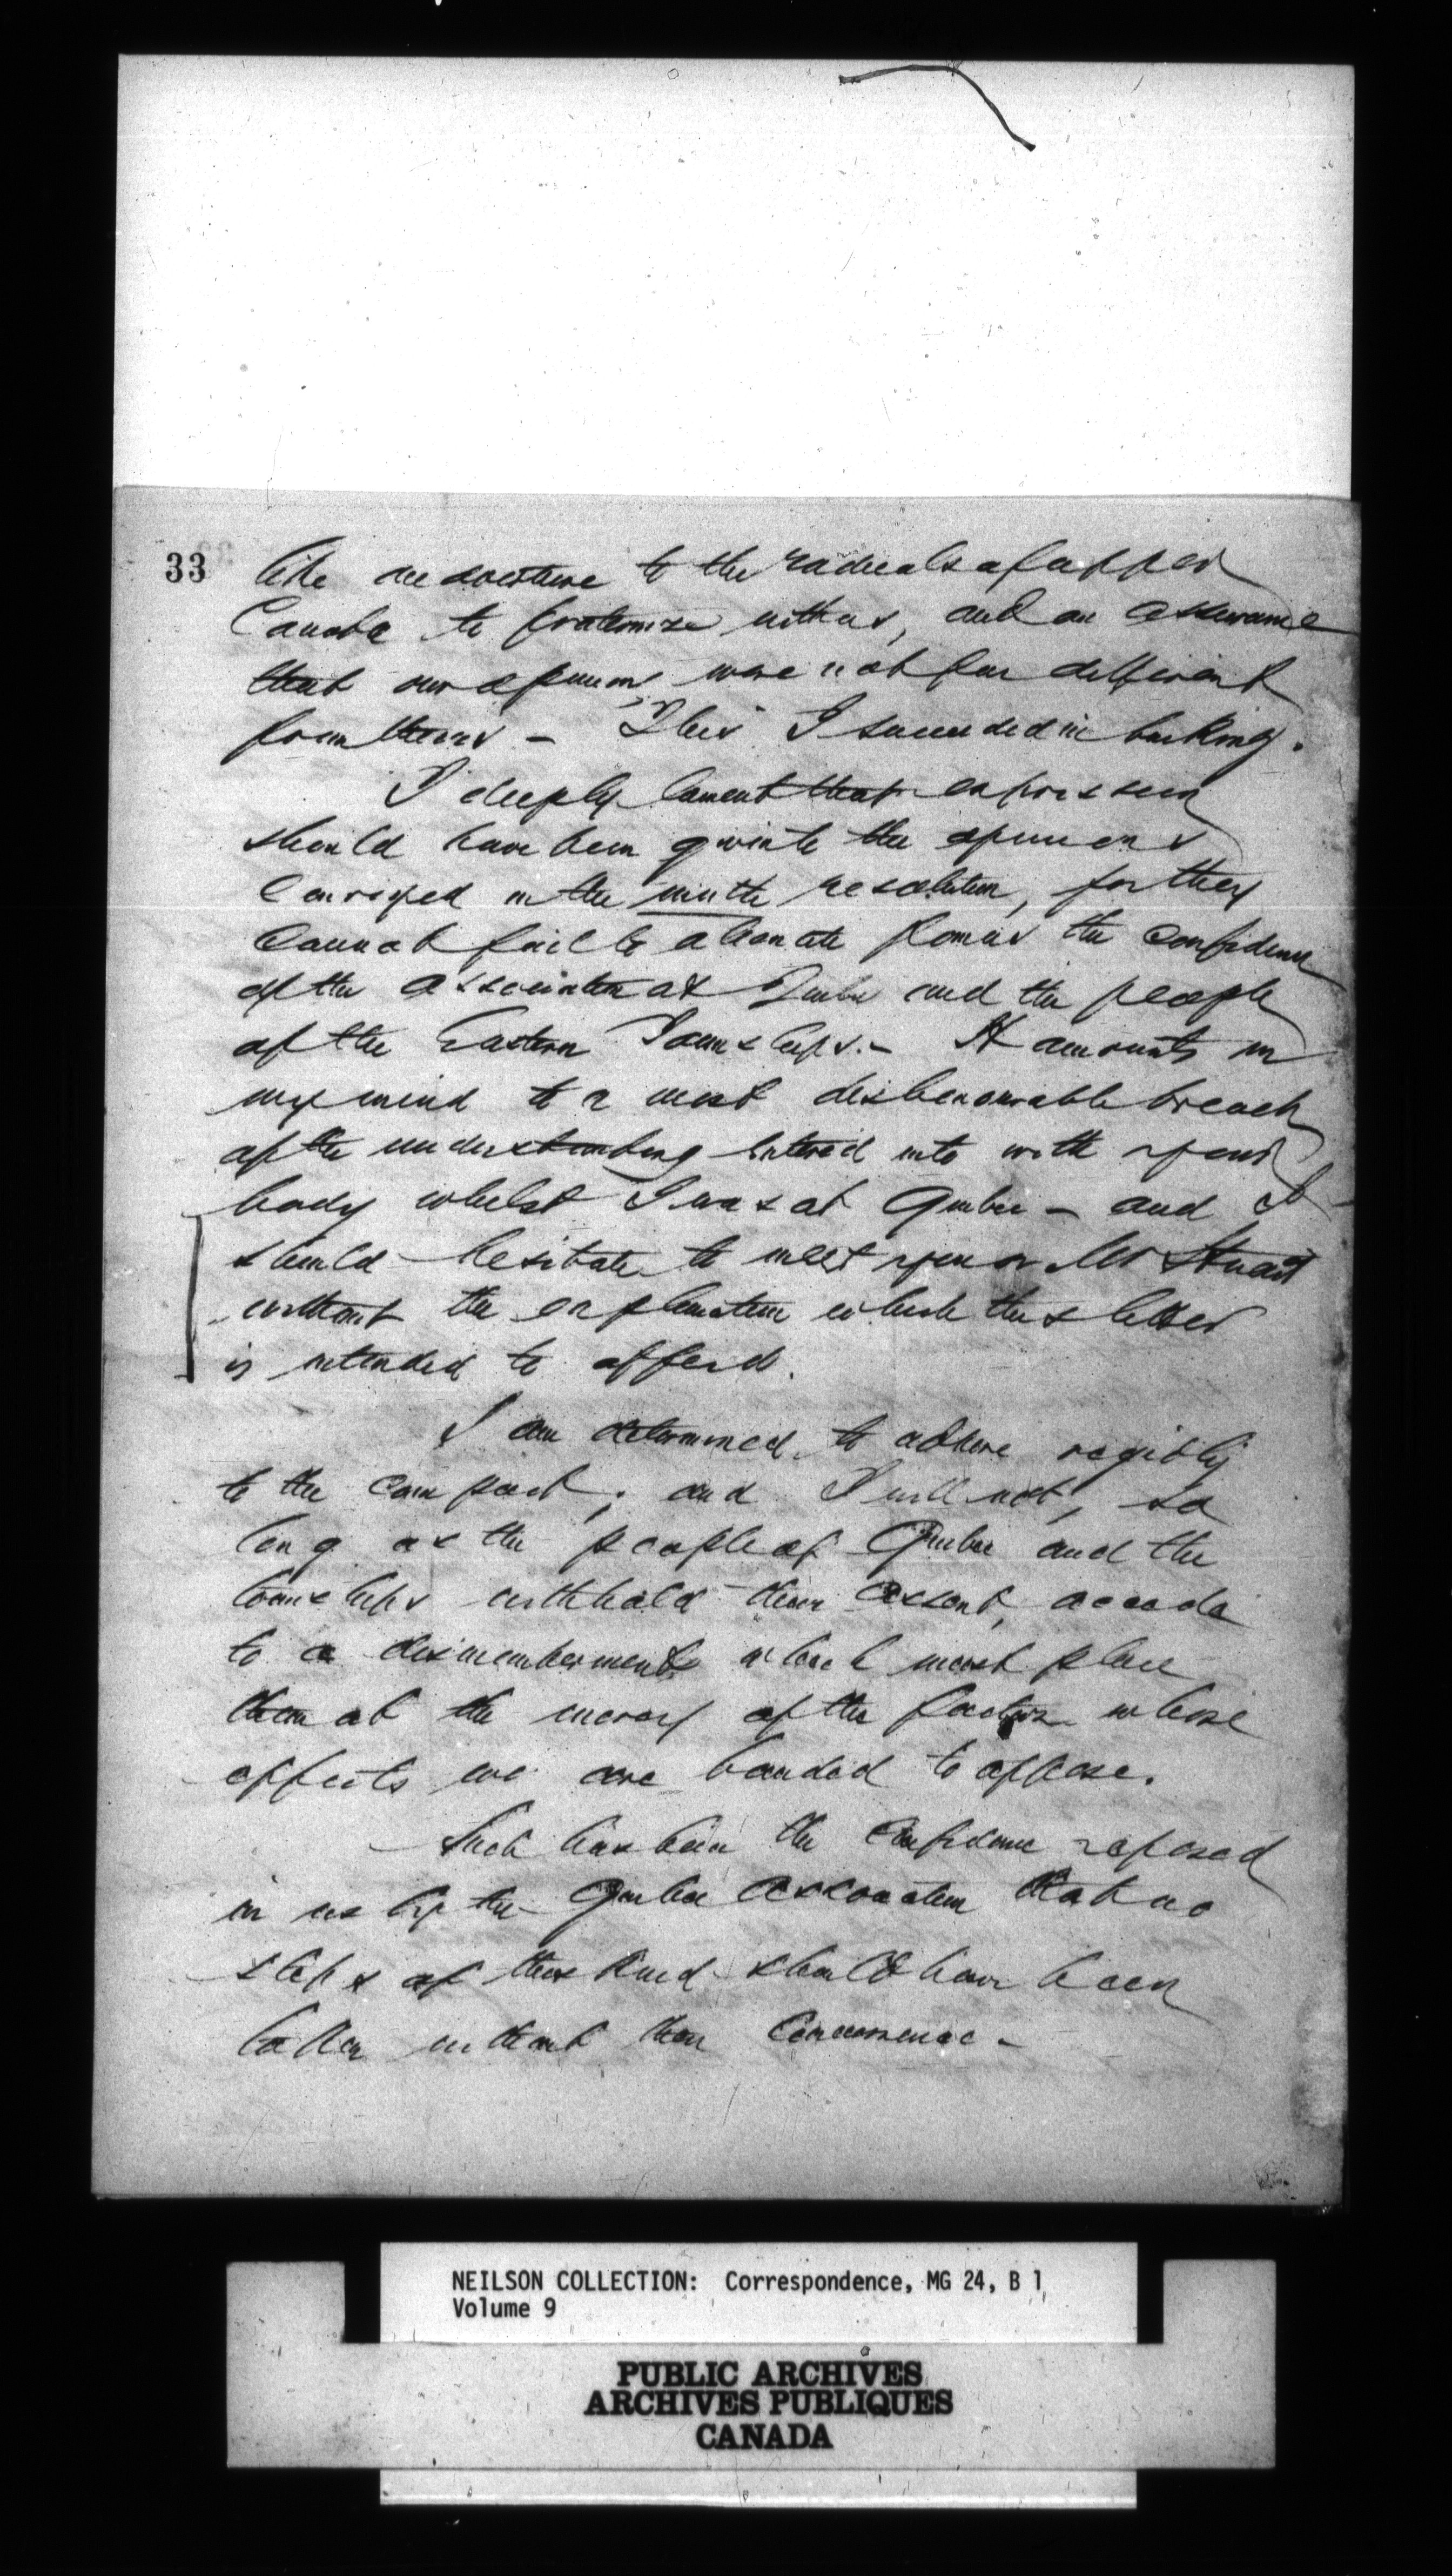 33
like an overture to the radicals of upper
Canada to fraternize with us, and an assurance
that our opinions were not far different
from theirs – This I succeeded in burking.
I deeply lament that expression
should have been given to the opinions
conveyed in the ninth resolution, for they
cannot fail to alienate from us the confidence
of the association at Quebec and the people
of the Eastern Townships. – It amounts in
my mind to a most dishonourable breach
of the understanding entered into with your
body whilst I was at Quebec – and I
should hesitate to meet you or Mr Stuart
without the explanation which this letter
is intended to afford.
I am determined to adhere rigidly
to the compact; and I will not, so
long as the people of Quebec and the
townships withhold their assent, accede
to a dismemberment which must place
them at the mercy of the faction whose
efforts we are banded to oppose.
Such has been the confidence reposed
in us by the Quebec association that no
steps of this kind should have been
taken without their concurrence –
NEILSON COLLECTION: Correspondence, MG 24, B 1
Volume 9
PUBLIC ARCHIVES
ARCHIVES PUBLIQUES
CANADA